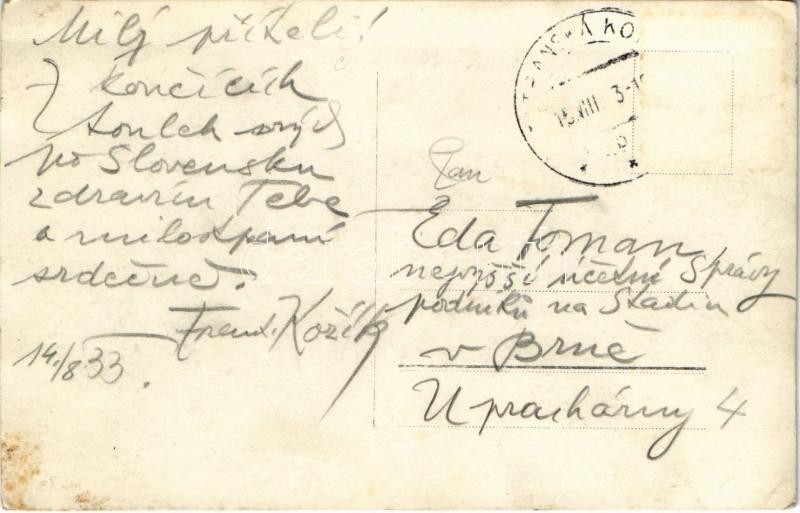 Milý příteli!
Z končících
toulek svých
po Slovensku
zdravím Tebe
a milostpaní
srdečně.
Frant. Kožík
14./8 33.
TRANSKÁ KO
15.VIII 3-1
Pan
Eda Toman
nejvyšší účetní Správy
podniků na Stadiu
v Brně
U prachárny 4